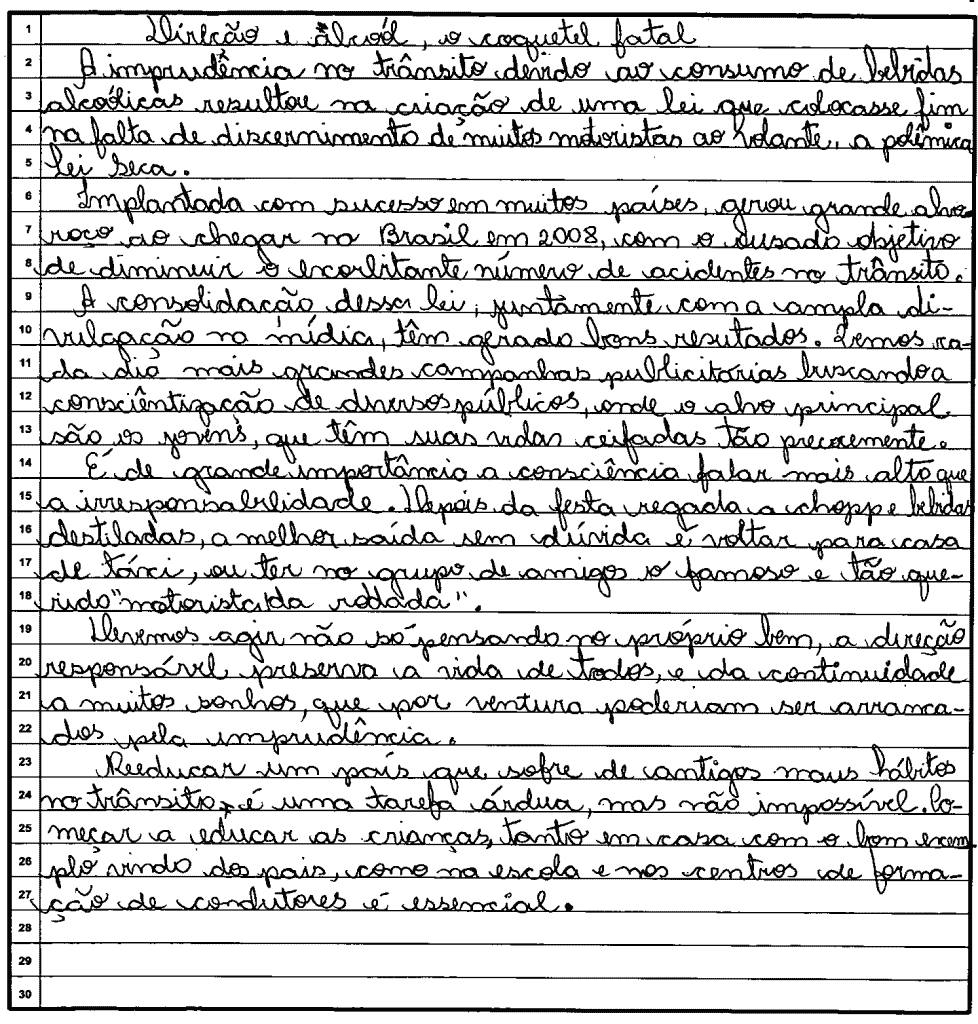 1 Direcão e álcoól, o coquetel fatal
2 A imprudência no trânsito devido ao consumo de bebidas
3 alcoólicas resultou na criação de uma lei que colocasse fim
4 na falta de discernimento de muitos motoristas ao volante, a polêmica
5 lei seca.
6 Implantada com sucesso em muitos países, gerou grande alvo
7 roço ao chegar no Brasil em 2008, com o ousado objetivo
8 de diminuir o exorbitante número de acidentes no trânsito.
9 A consolidação dessa lei, juntamente com a ampla di-
10 vulgação na mídia, têm gerado bons resutados. Temos ca-
11 da dia mais grandes campanhas publicitárias buscando a
12 consciêntização de diversos públicos, onde o alvo principal
13 são os jovens, que têm suas vidas ceifadas tão precoremente.
14 É de grande importância a consciência falar mais alto que
15 a irresponsabilidade. Depois da festa regada a chopp e bebidas
16 destiladas, a melhor saída sem dúvida é voltar para casa
17 de táxi, ou ter no grupo de amigos o famoso e tão que-
18 rido "motorista da rodada".
19 Devemos agir não só pensando no próprio bem, a direção
20 responsável preserva a vida de todos, e da continuidade
21 a muitos sonhos, que por ventura poderiam ser arranca-
22 dos pela imprudência.
23 Reeducar um país que sofre de antigos maus hábitos
24 no trânsito, é uma tarefa árdua, mas não impossível. Co-
25 meçar a educar as crianças, tanto em casa com o bom exem
26 plo vindo dos pais, como na escola e nos centros de forma-
27 ção de condutores é essencial.
28
29
30